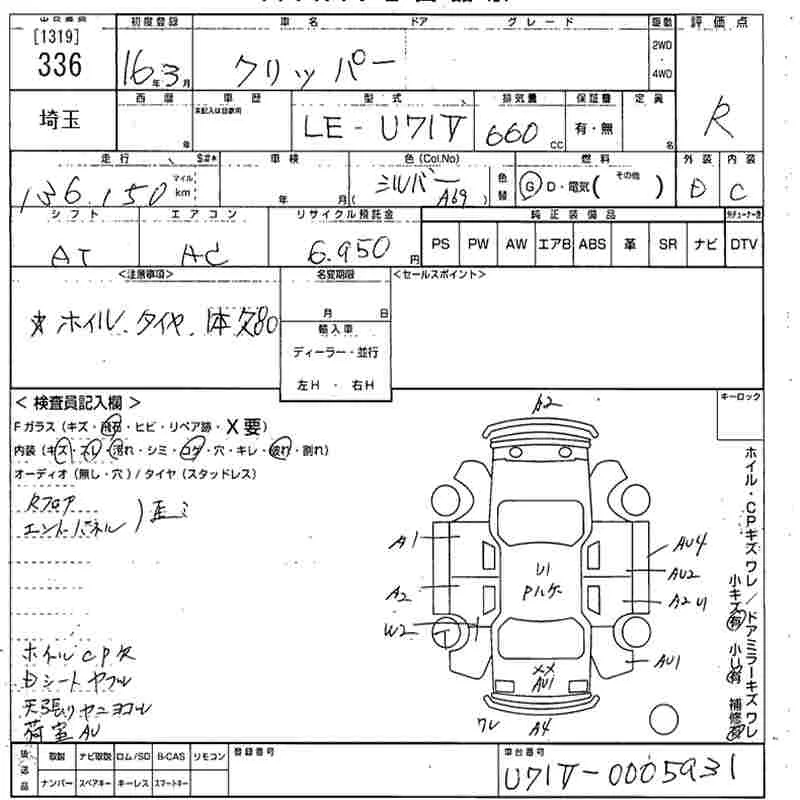 [1319]
336
初度登録 車名 ドア グレード 駆動 評価点
16年3月 クリッパー 2WD・4WD
R
埼玉
西暦 車歴 型式 排気量 保証書 定員
未記入は自家用
年 LE-U71V 660cc 有・無 名
走行 S#* 車検 色(Col.No) 燃料 外装 内装
136,150 マイル km 年 月 シルバー (A69) 色替 G D・電気( その他 ) D C
シフト エアコン リサイクル預託金 純正装備品
AT AC 6,950円 PS PW AW エアB ABS 革 SR ナビ DTV
<注意事項> 名変期限 <セールスポイント>
月 日
*ホイル、タイヤ、1本欠80
輸入車
ディーラー・並行
左H・右H
<検査員記入欄> キーロック
Fガラス(キズ・飛石・ヒビ・リペア跡・X要)
内装(キズ・スレ・汚れ・シミ・コゲ・穴・キレ・破れ・割れ)
オーディオ(無し・穴)/タイヤ(スタッドレス)
Rフロア
エンドパネル
歪ミ
A2
A1
A2
W2
U1
Pハゲ
AU4
AU2
A2 U1
AU1
XX
AU1
ワレ A4
ホイル・CPキズ ワレ/ドアミラーキズ ワレ
小キズ有 小U有 補修有
ホイルCP欠
Dシートヤブレ
天張りヤニヨゴレ
荷室AU
後送品 取説 ナビ取説 ロム/SD B-CAS リモコン 登録番号 車台番号
ナンバー スペアキー キーレス スマートキー
U71V-0005931